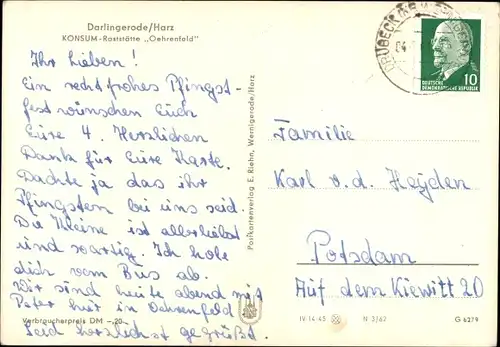 Darlingerode/Harz
KONSUM-Raststätte „Oehrenfeld"
Ihr Lieben!
Ein recht frohes Pfingst-
fest wünschen Euch
Eure 4. Herzlichen
Dank für Eure Karte.
Dachte ja das ihr
Pfingsten bei uns seid.
Die Kleine ist allerliebst
und wartig. Ich hole
dich vom Bus ab.
Wir sind heute abend mit
Peter hier in Oehrenfeld
Seid herzlichst gegrüßt.
Verbraucherpreis DM -,20
Postkartenverlag E. Riehn, Wernigerode/Harz
DRÜBECK
04
10
DEUTSCHE
DEMOKRATISCHE REPUBLIK
Familie
Karl v. d. Heyden
Potsdam
Auf dem Kiewitt 20
IV-14-45 N 3/62 G 6279